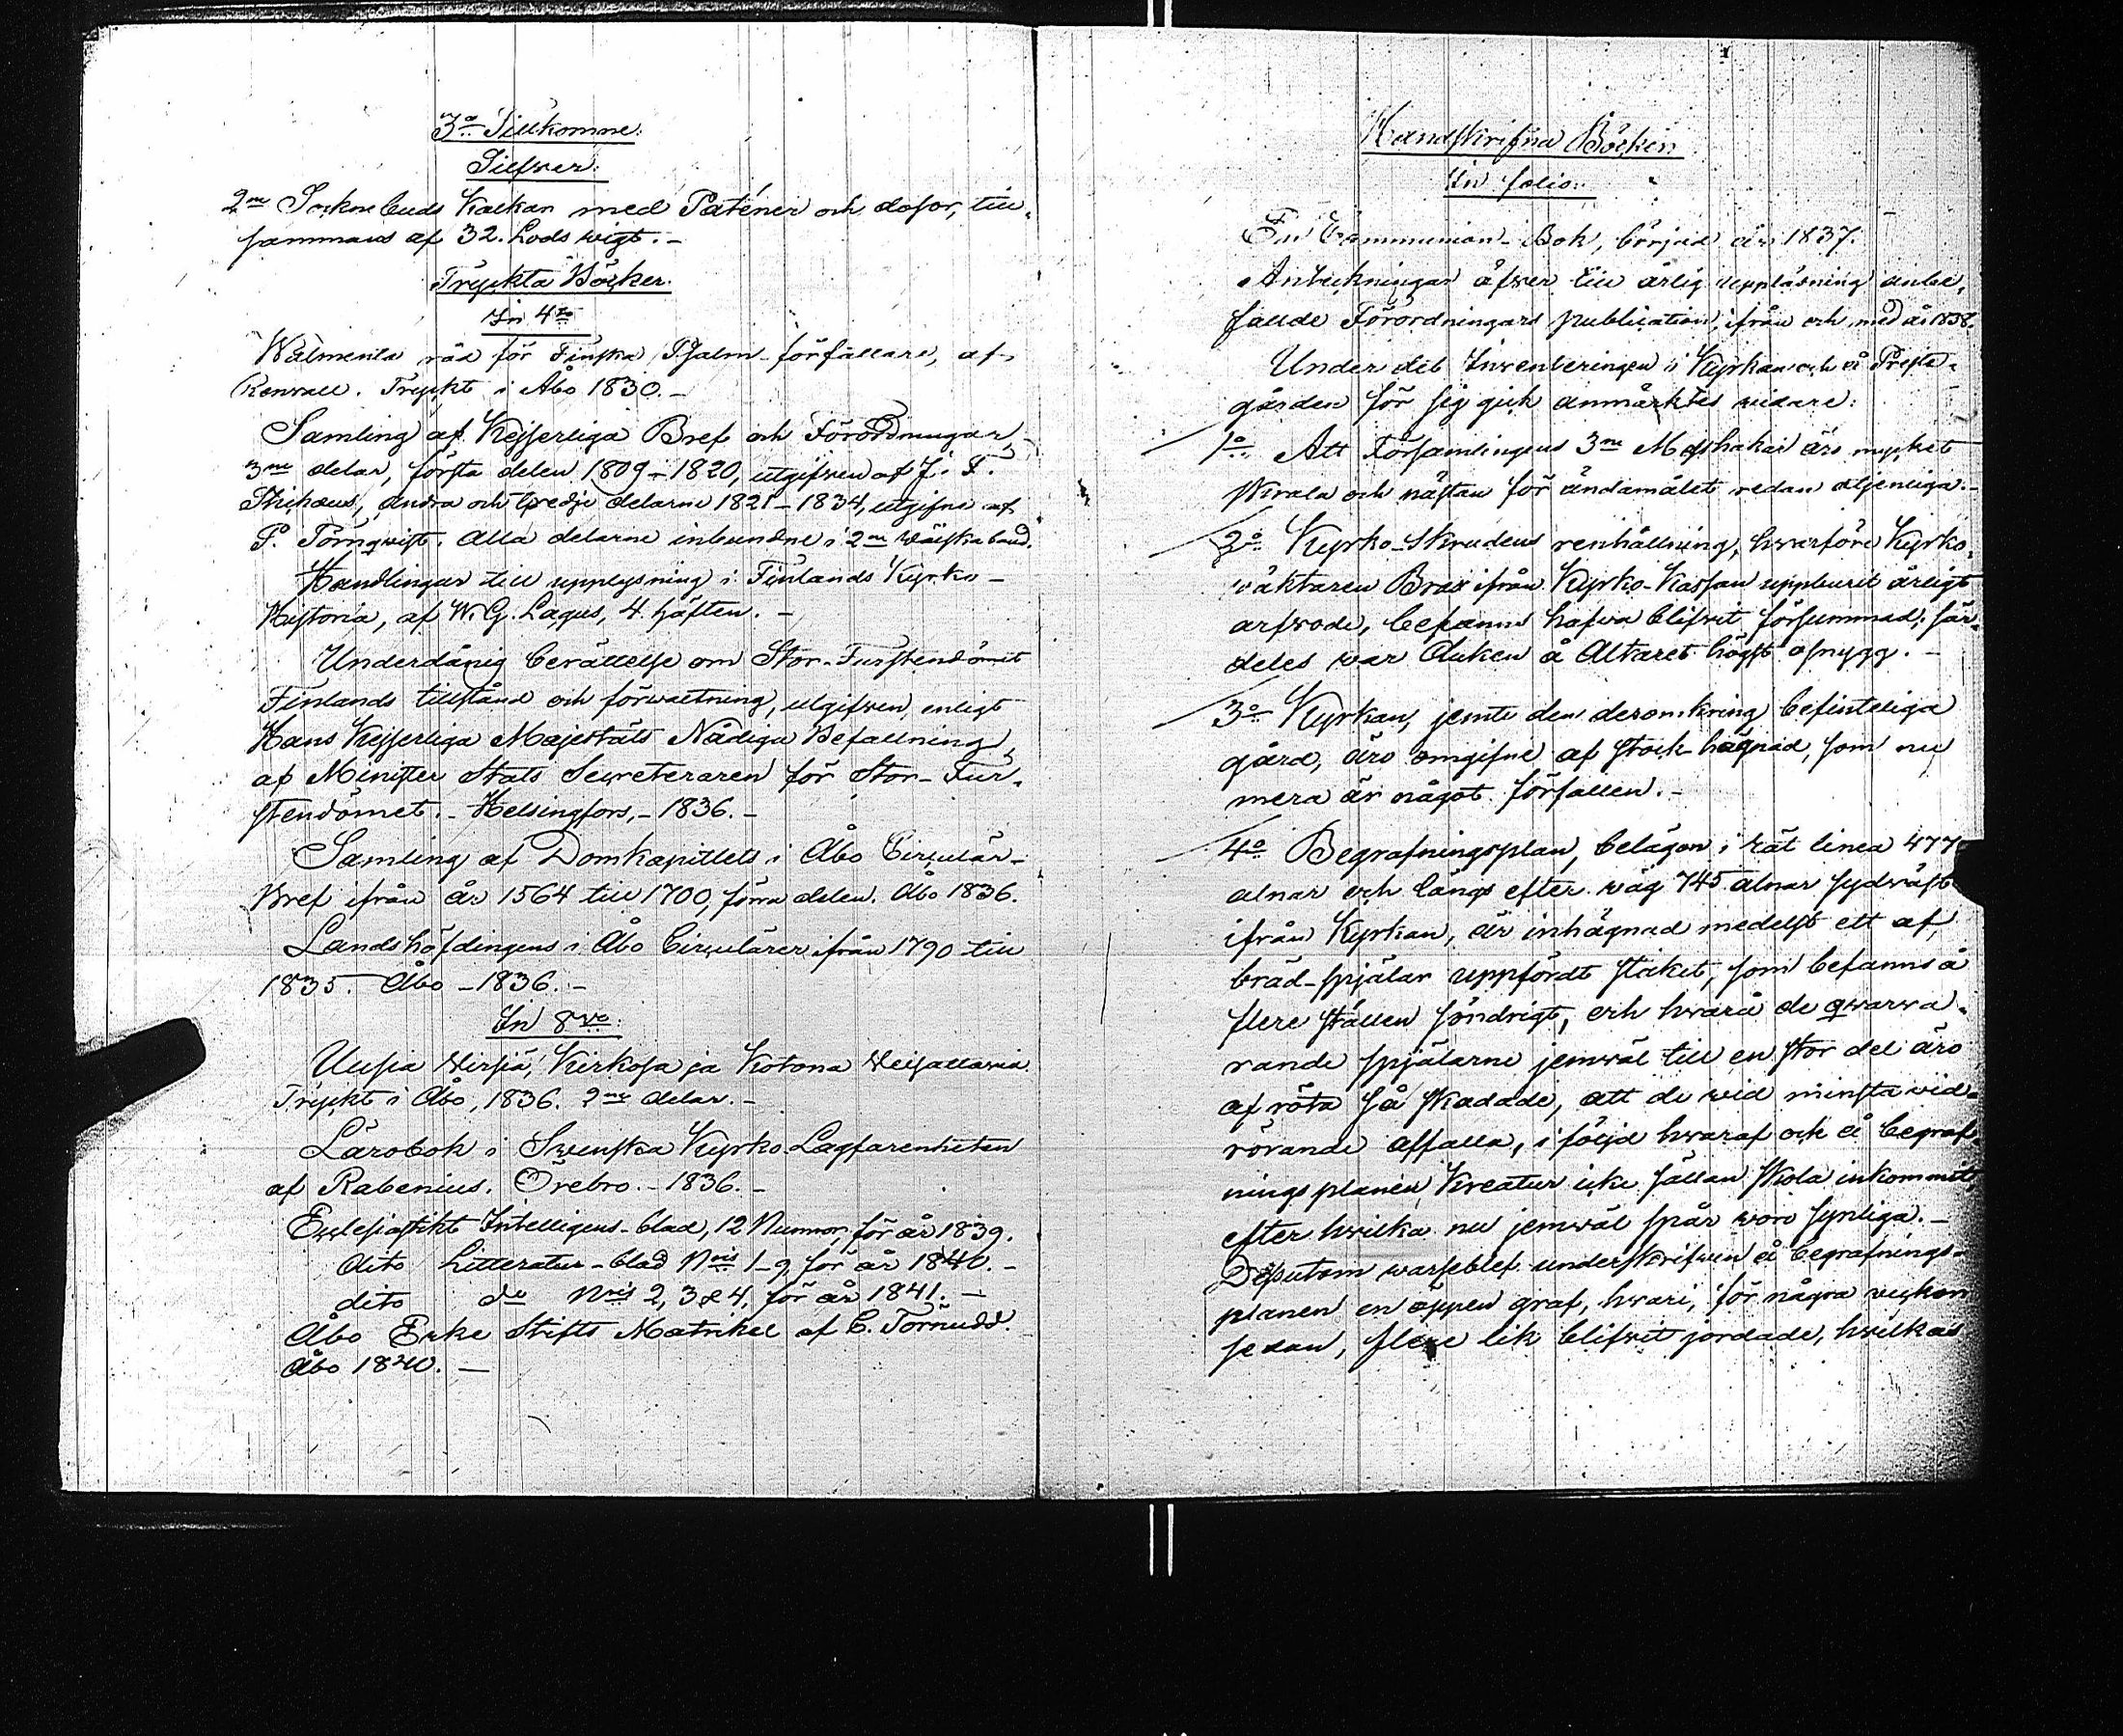 3:o Tillkomne.
Silfver.
2:ne Sockne buds Kalkar med Paténer och dosor, till-
sammans af 32. Lods wigt. -
Tryckta Böcker.
In 4:to
Wälmenta råd för Finska Psalm-författare, af
Renvall. Tryckt i Åbo 1830. -
Samling af Kejserliga Bref och Förordningar,
3:ne delar, första delen 1809-1820, utgifven af J. F.
andra och tredje delarne 1821-1834, utgifne af
P. Törnqvist. Alla delarne inbundne i 2:ne wälska band.
Handlingar till upplysning i Finlands Kyrko-
Historia, af W. G. Lagus, 4. häften. -
Underdånig berättelse om Stor-Furstendömet
Finlands tillstånd och förwaltning, utgifwen, enligt
Hans Kejserliga Majestäts Nådiga Befallning,
af Minister Stats Secreteraren för Stor-Fur-
stendömet. - Helsingfors, - 1836. -
Samling af Domkapitlets i Åbo Circulär-
Bref ifrån år 1564 till 1700, förra delen. Åbo 1836.
Landshöfdingens i Åbo Circulärer ifrån 1790 till
1835. Åbo - 1836. -
In 8:vo.
Uusia Wirsiä, Kirkosa ja Kotona Weisattawia.
Tryckt i Åbo, 1836. 2:ne delar. -
Lärobok i Swenska Kyrko Lagfarenheten
af Rabenius. Örebro. - 1836. -
Ecclesiastikt Intelligens-blad, 12 Numror, för år 1839.
dito Litteratur-blad N:ris 1-9 för år 1840. -
dito d:o N:ris 2, 3 & 4, för år 1841. -
Åbo Erke Stifts Matrikel af C. Törnudd.
Åbo 1840. -
Handskrifna Böcker
In folio.
En Communion-Bok, börjad år 1837.
Anteckningar öfwer till årlig uppläsning anbe-
fallde Förordningars publication, ifrån och med år 1838.
Under det Inventeringen i Kyrkan och å Preste-
gården för sig gick anmärktes widare:
1:o Att Församlingens 3:ne Messhakar äro mycket
skrala och nästan för ändamålet redan otjenliga. -
2:o Kyrko-Skrudens renhållning, hwarföre Kyrko-
wäktaren Brax ifrån Kyrko-Kassan uppburit årligt
arfwode, befanns hafwa blifwit försummad; sär-
deles war Duken å Altaret högst osnygg. -
3:o Kyrkan, jemte den deromkring befinteliga
gård, äro omgifne af stock-hägnad, som nu
mera är något förfallen. -
4:o Begrafningsplan, belägen i rät linea 477
alnar och längs efter wäg 745 alnar sydwäst
ifrån Kyrkan, är inhägnad medelst ett af
bräd-spjälar uppfördt staket, som befanns å
flere ställen söndrigt, och hwarå de qwarwa-
rande spjälarne jemwäl till en stor del äro
af röta så skadade, att de wid minsta wid-
rörande affalla, i följd hwaraf och å begraf-
ningsplanen Kreatur icke sällan skola inkommit,
efter hwilka nu jemwäl spår woro synliga. -
Dessutom warseblef underskrifwen å begrafnings-
planen en öppen graf, hwari, för några weckor
sedan, flere lik blifwit jordade, hwilkas